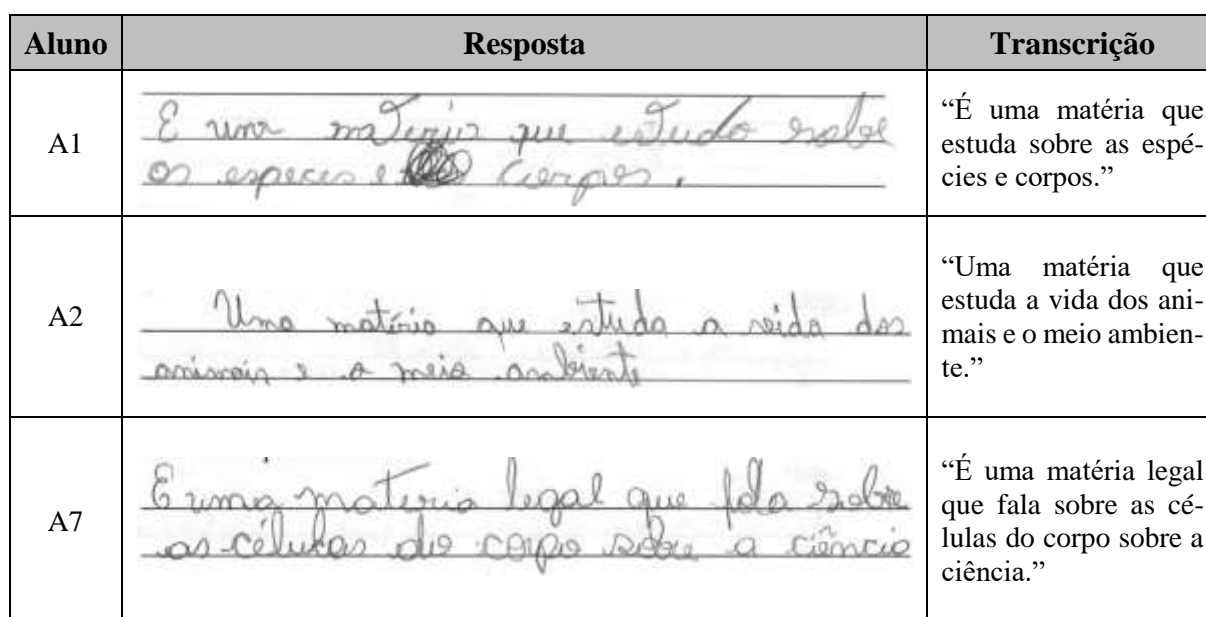 Aluno Resposta Transcrição
A1
E uma materia que estudo sobre
as especies e corpos.
“É uma matéria que
estuda sobre as espé-
cies e corpos.”
A2
Uma matéria que estuda a vida dos
animais e o meio ambiente
“Uma matéria que
estuda a vida dos ani-
mais e o meio ambien-
te.”
A7
E uma materia legal que fala sobre
as células do corpo sobre a ciência
“É uma matéria legal
que fala sobre as cé-
lulas do corpo sobre a
ciência.”